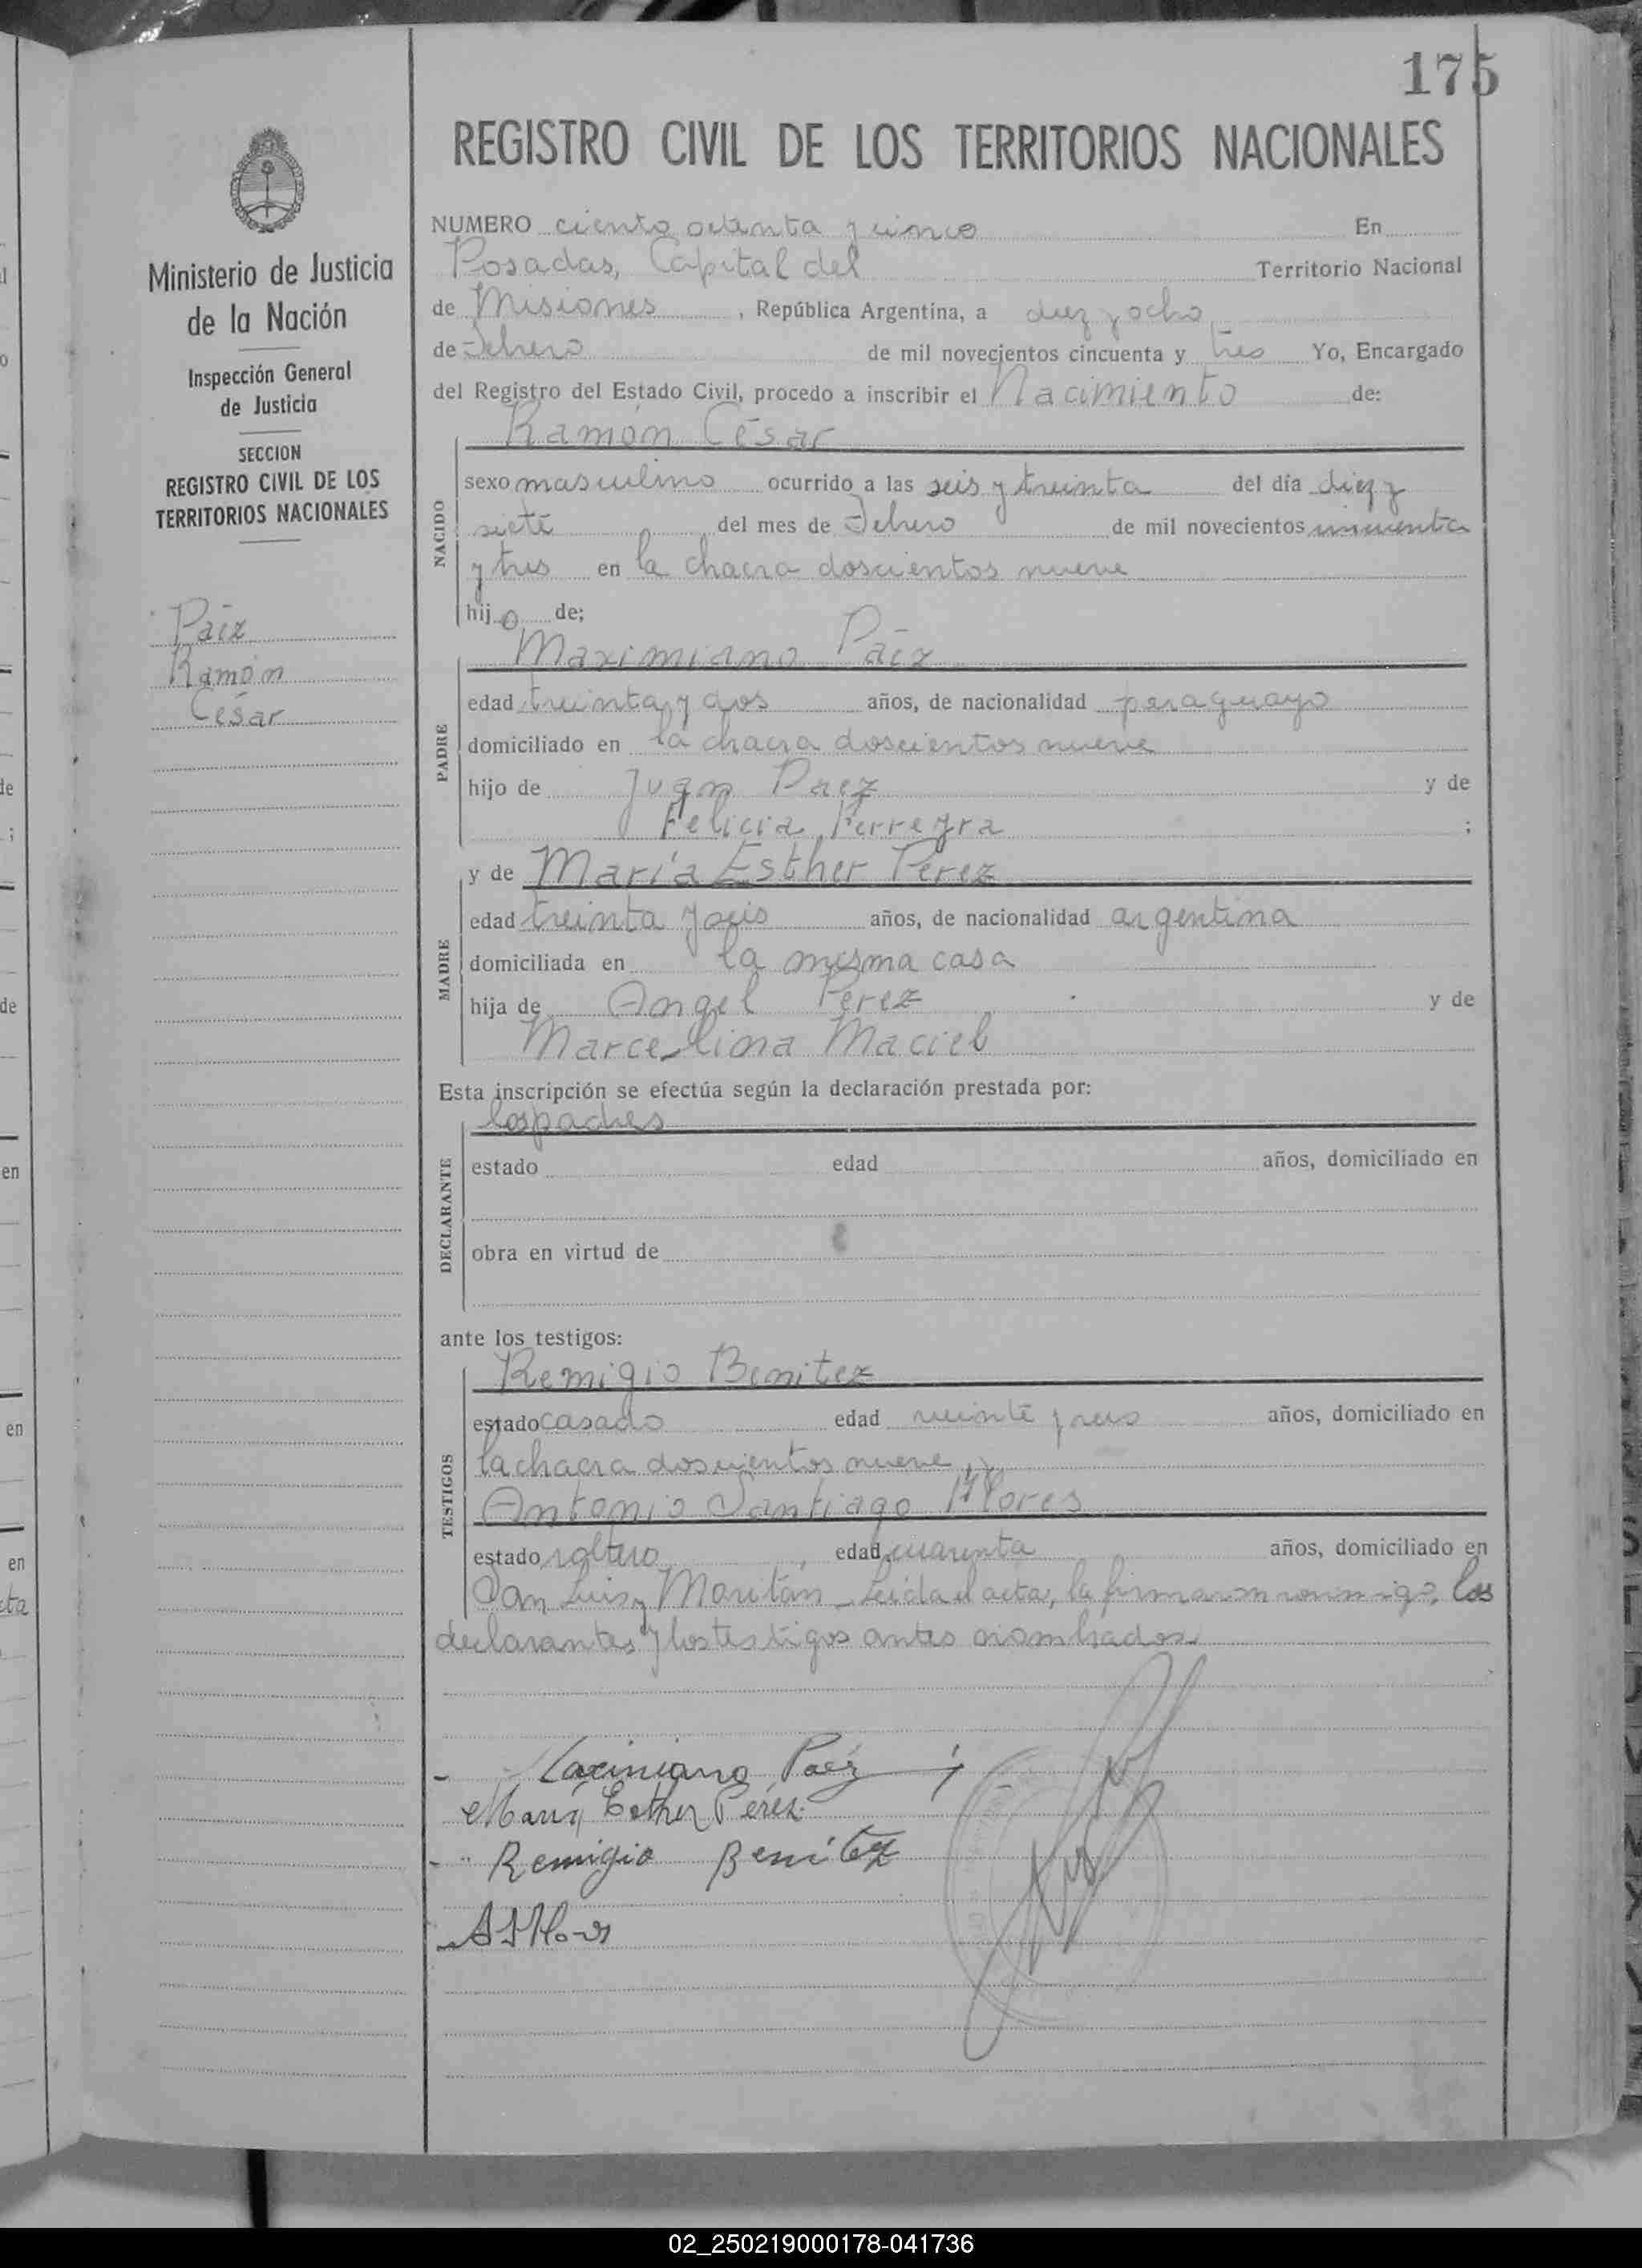 175
REGISTRO CIVIL DE LOS TERRITORIOS NACIONALES
Ministerio de Justicia
de la Nación
Inspección General
de Justicia
SECCION
REGISTRO CIVIL DE LOS
TERRITORIOS NACIONALES
Páez
Ramón
César
NUMERO ciento y cinco En
Posadas, Capital del Territorio Nacional
de Misiones , República Argentina, a diez y ocho
de Febrero de mil novecientos cincuenta y tres Yo, Encargado
del Registro del Estado Civil, procedo a inscribir el Nacimiento de:
Ramón César
NACIDO
sexo masculino ocurrido a las seis y treinta del día diez y
siete del mes de Febrero de mil novecientos cincuenta
y tres en la chacra doscientos nueve
hijo de;
Maximiano Páez
PADRE
edad treinta y dos años, de nacionalidad paraguayo
domiciliado en la chacra doscientos nueve
hijo de Juan Paez y de
Felicia Ferreyra ;
y de María Esther Perez
MADRE
edad treinta y seis años, de nacionalidad argentina
domiciliada en la misma casa
hija de Angel Perez y de
Marcelina Maciel
Esta inscripción se efectúa según la declaración prestada por:
los padres
DECLARANTE
estado edad años, domiciliado en
obra en virtud de
ante los testigos:
Remigio Benitez
TESTIGOS
estado casado edad veinte y seis años, domiciliado en
la chacra doscientos nueve,
Antonio Santiago Flores
estado soltero edad cuarenta años, domiciliado en
San Luis y Moritán. Leída el acta, la firmaron conmigo, los
declarantes y los testigos antes nombrados
Maximiano Paéz
María Esther Pérez.
Remigio Benítez
02_250219000178-041736